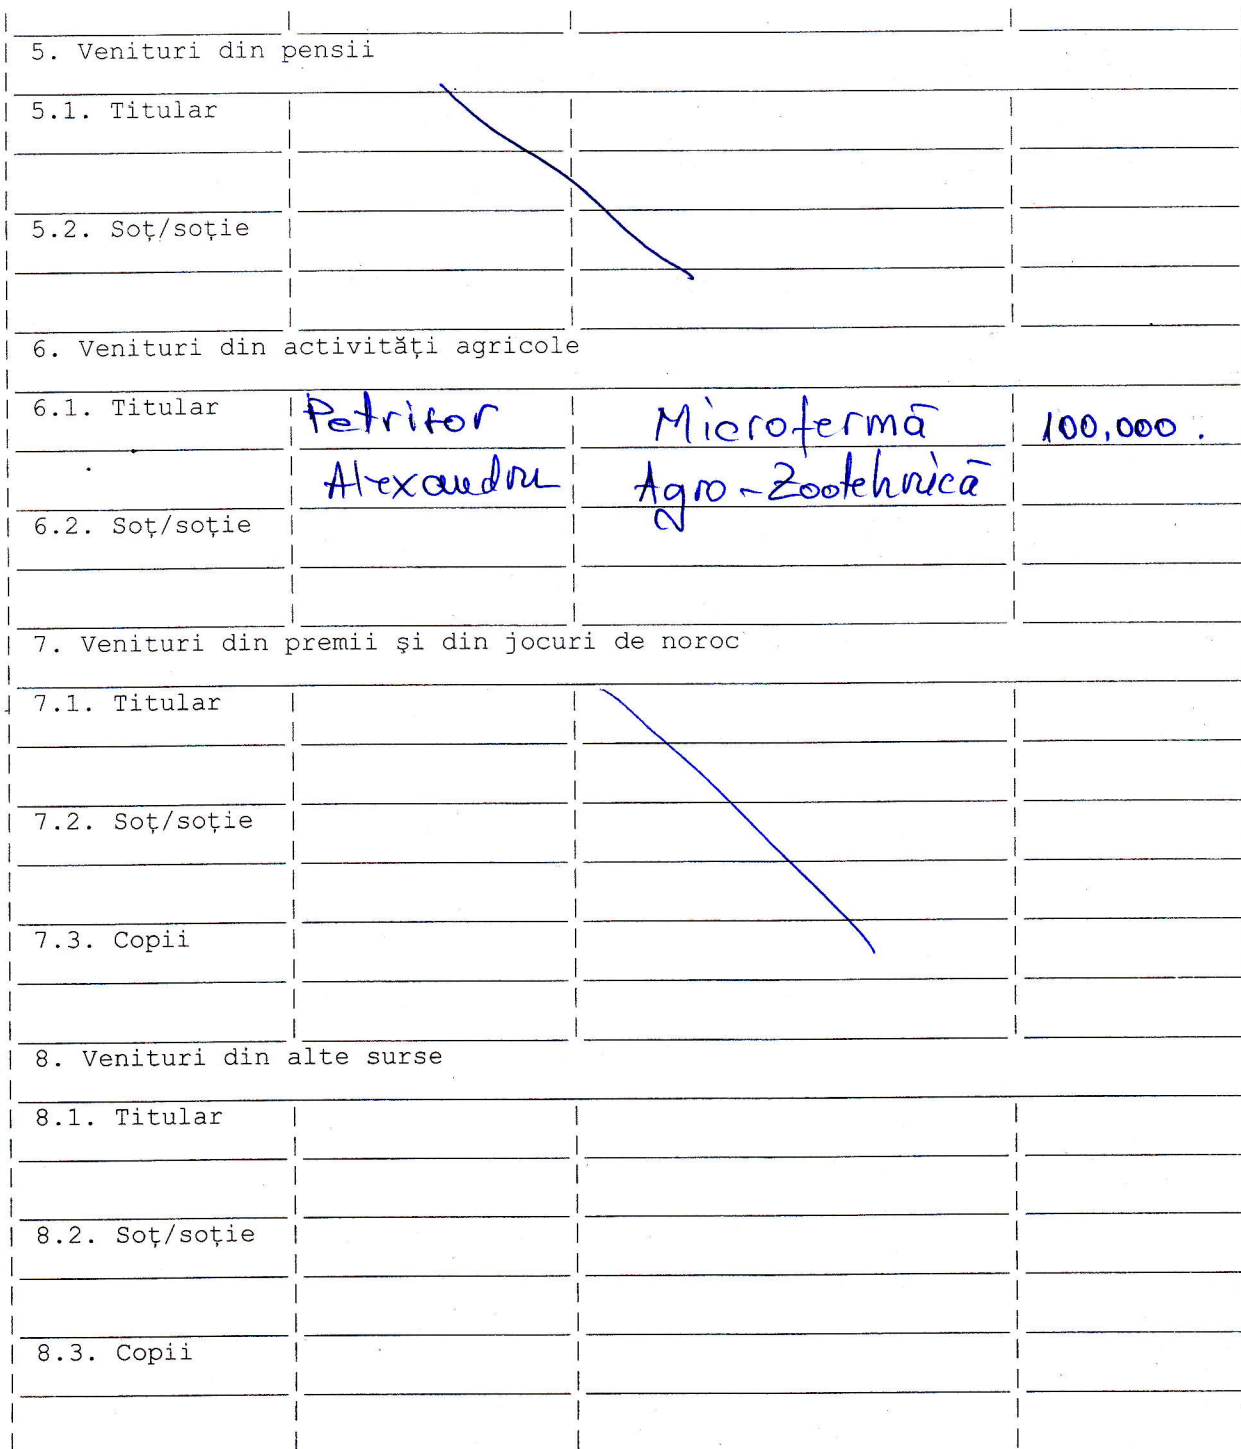 5. Venituri din pensii
5.1. Titular
5.2. Soţ/soţie
6. Venituri din activităţi agricole
6.1. Titular Petrișor Microfermă 100.000.
Alexandru Agro-Zootehnică
6.2. Soţ/soţie
7. Venituri din premii şi din jocuri de noroc
7.1. Titular
7.2. Soţ/soţie
7.3. Copii
8. Venituri din alte surse
8.1. Titular
8.2. Soţ/soţie
8.3. Copii